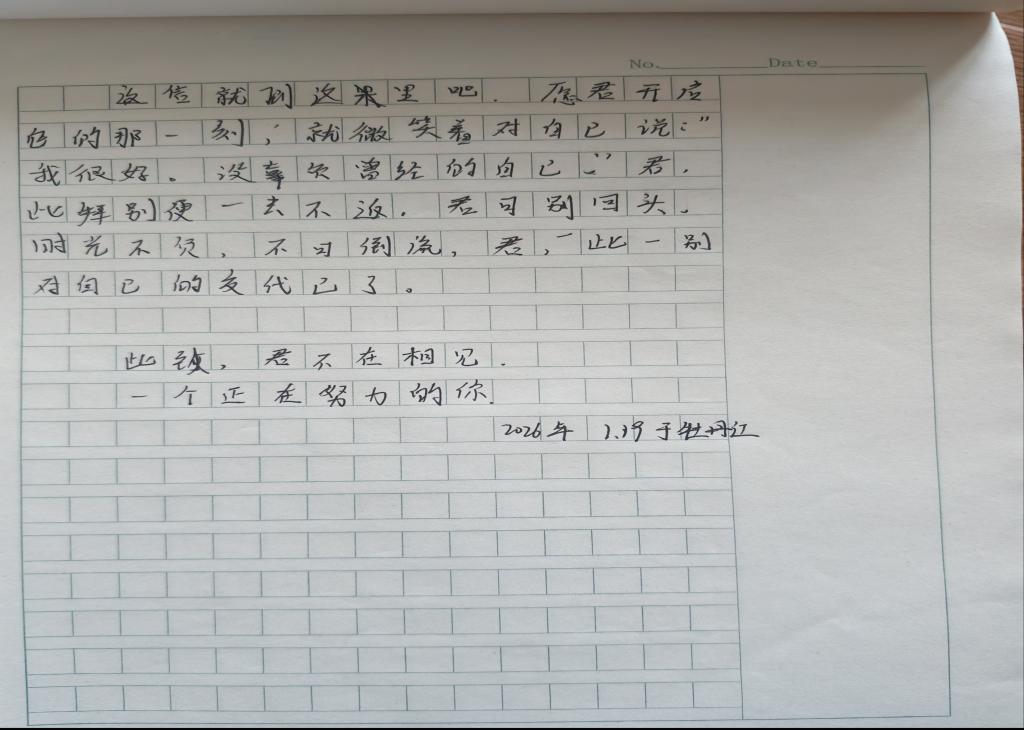 No. Date
这信就到这里吧．愿君开应
的那一刻，就微笑着对自己说："
我很好。没辜负曾经的自己．"君．
此 别便一去不返．君可别回头．
时光不负，不可倒流，君，此一别
对自己的交代已了。
此致，君不在相见．
一个正在努力的你．
2026年 于牡丹江